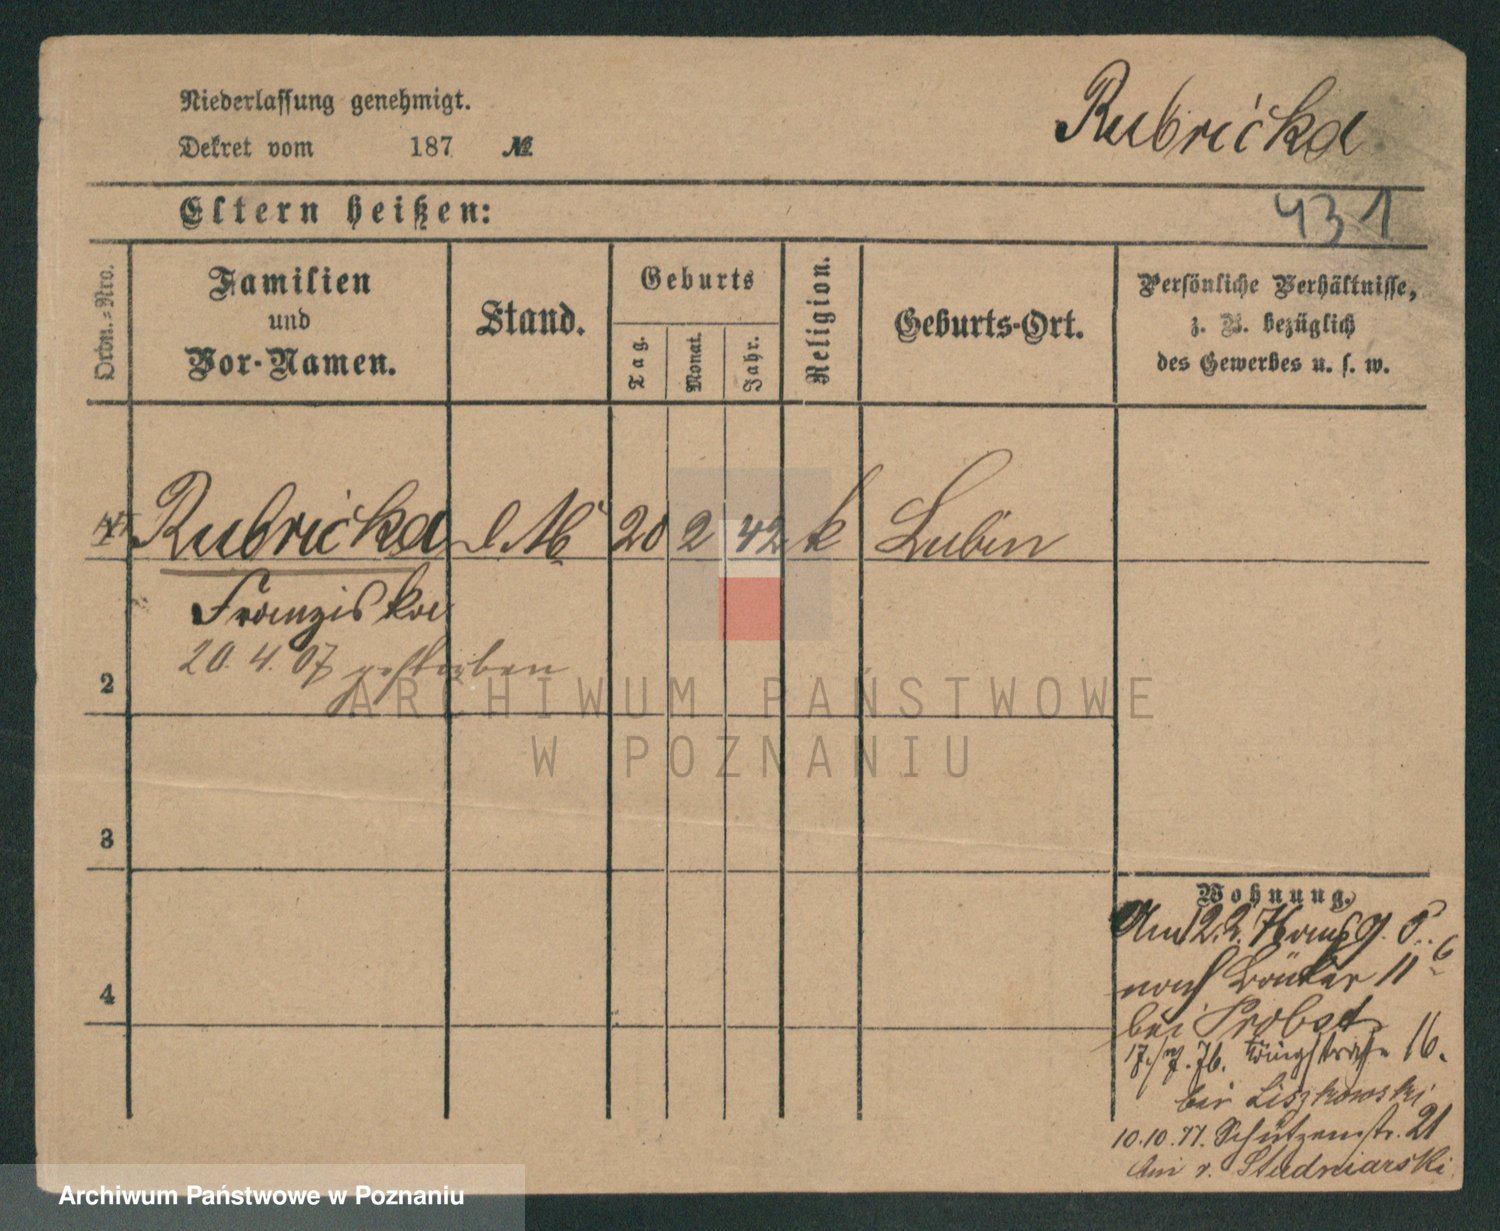 Niederlassung genehmigt.
Dekret vom 187 №
Rubricka
Eltern heißen:
431
Ordn.-Nro.
Familien
und
Vor-Namen.
Stand.
Geburts
Tag.
Monat.
Jahr.
Religion.
Geburts-Ort.
Persönliche Verhältnisse,
z. B. bezüglich
des Gewerbes u. s. w.
1 Rubricka d. M 20 2 42 k Lubin
Franziska
20. 4. 07 gestorben
2
3
4
Wohnung.
Am 12.2.76
nach Bäcker 11
bei Probst
17./7.76. Ringstraße 16.
bei Liszkowski
10.10.77. Schützenstr. 21
bei v. Studniarski
ARCHIWUM PAŃSTWOWE
W POZNANIU
Archiwum Państwowe w Poznaniu